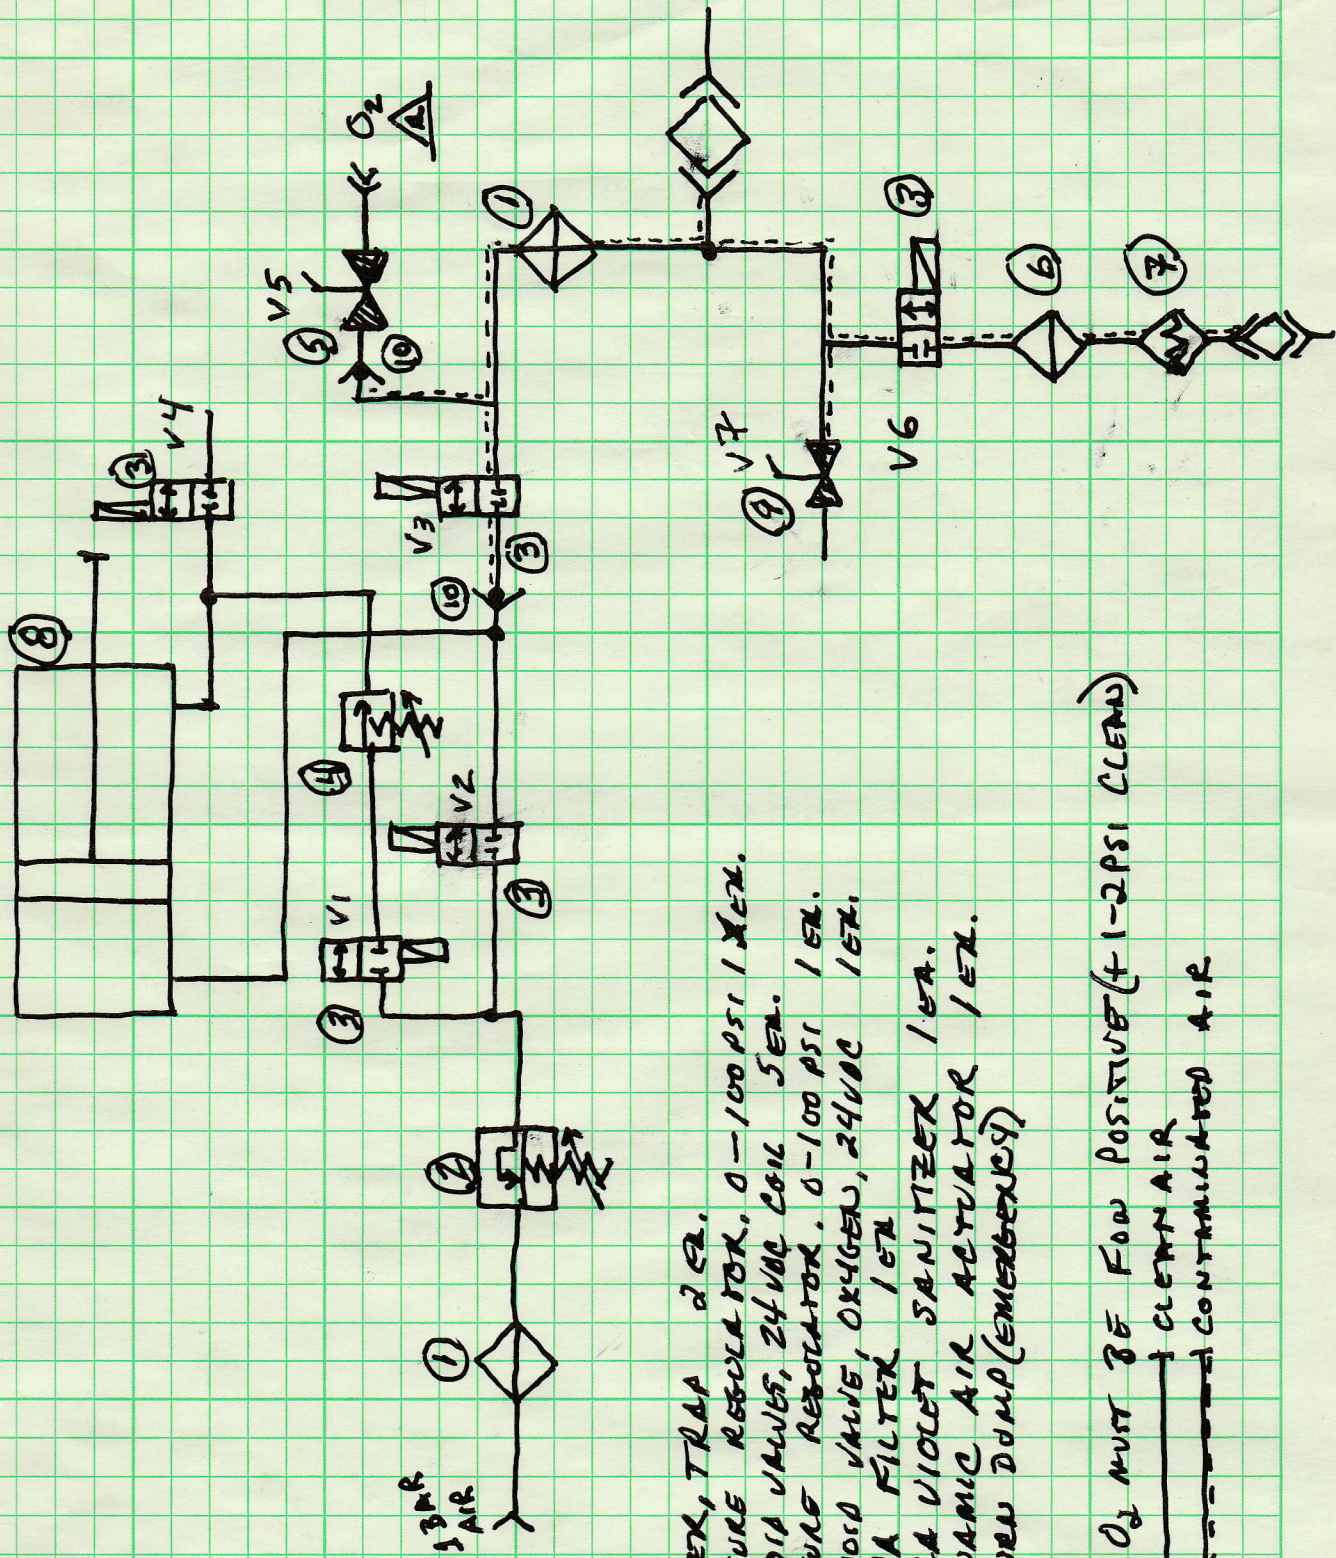 3 BAR
AIR
1
2
3
V1
3
V2
4
8
3
V4
10
V3
3
V5
5
10
O2
A
1
V7
9
V6
3
6
7
ER, TRAP 2 EA.
URE REGULATOR, 0-100 PSI 1 EA.
OID VALVES, 24 VDC COIL 5 EA.
URE REGULATOR, 0-100 PSI 1 EA.
NOID VALVE, OXYGEN, 24VDC 1 EA.
A FILTER 1 EA
A VIOLET SANITIZER 1 EA.
NAMIC AIR ACTUATOR 1 EA.
DUMP (EMERGENCY)
O2 MUST BE FOR POSITIVE (+1-2PSI CLEAN)
CLEAN AIR
CONTAMINATED AIR